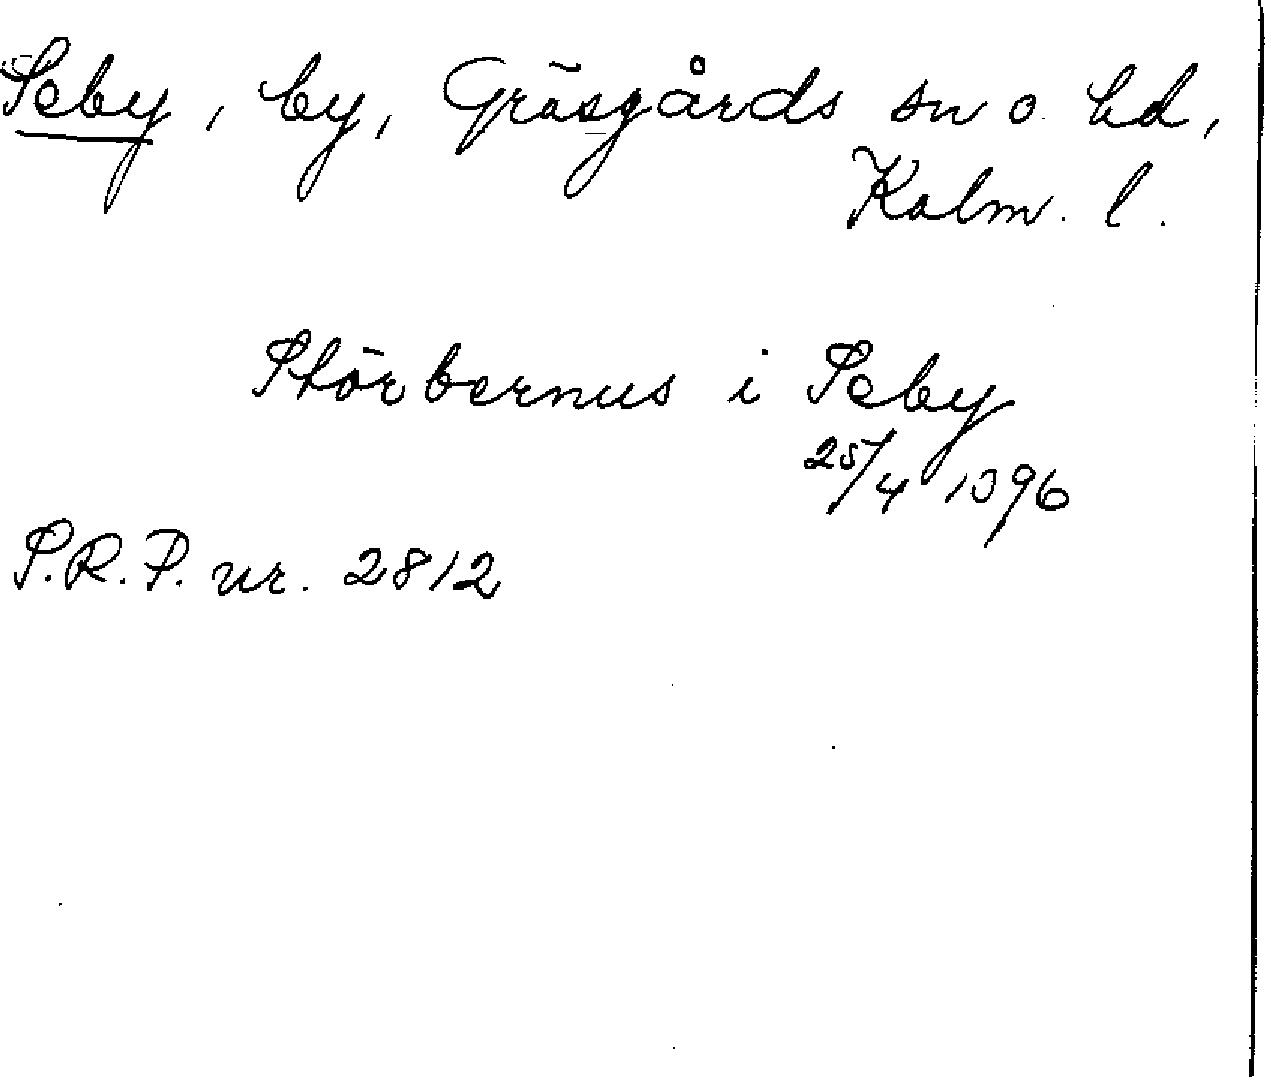 Seby, by, Gräsgårds sn o. hd,
Kalm. l.
Störbernus i Seby
25/4 1396
S.R.P. nr. 2812